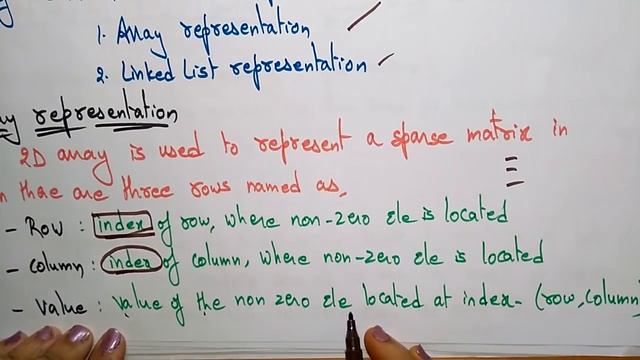 1. Array representation
2. Linked List representation
representation
2D array is used to represent a sparse matrix in
there are three rows named as,
- Row : index of row, where non-zero ele is located
- Column : index of column, where non-zero ele is located
- Value : value of the non zero ele located at index - (row, column)